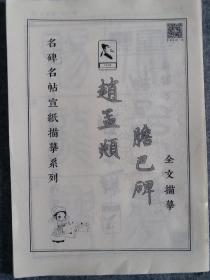 名碑名帖宣紙描摹系列
趙孟頫
膽巴碑
全文描摹